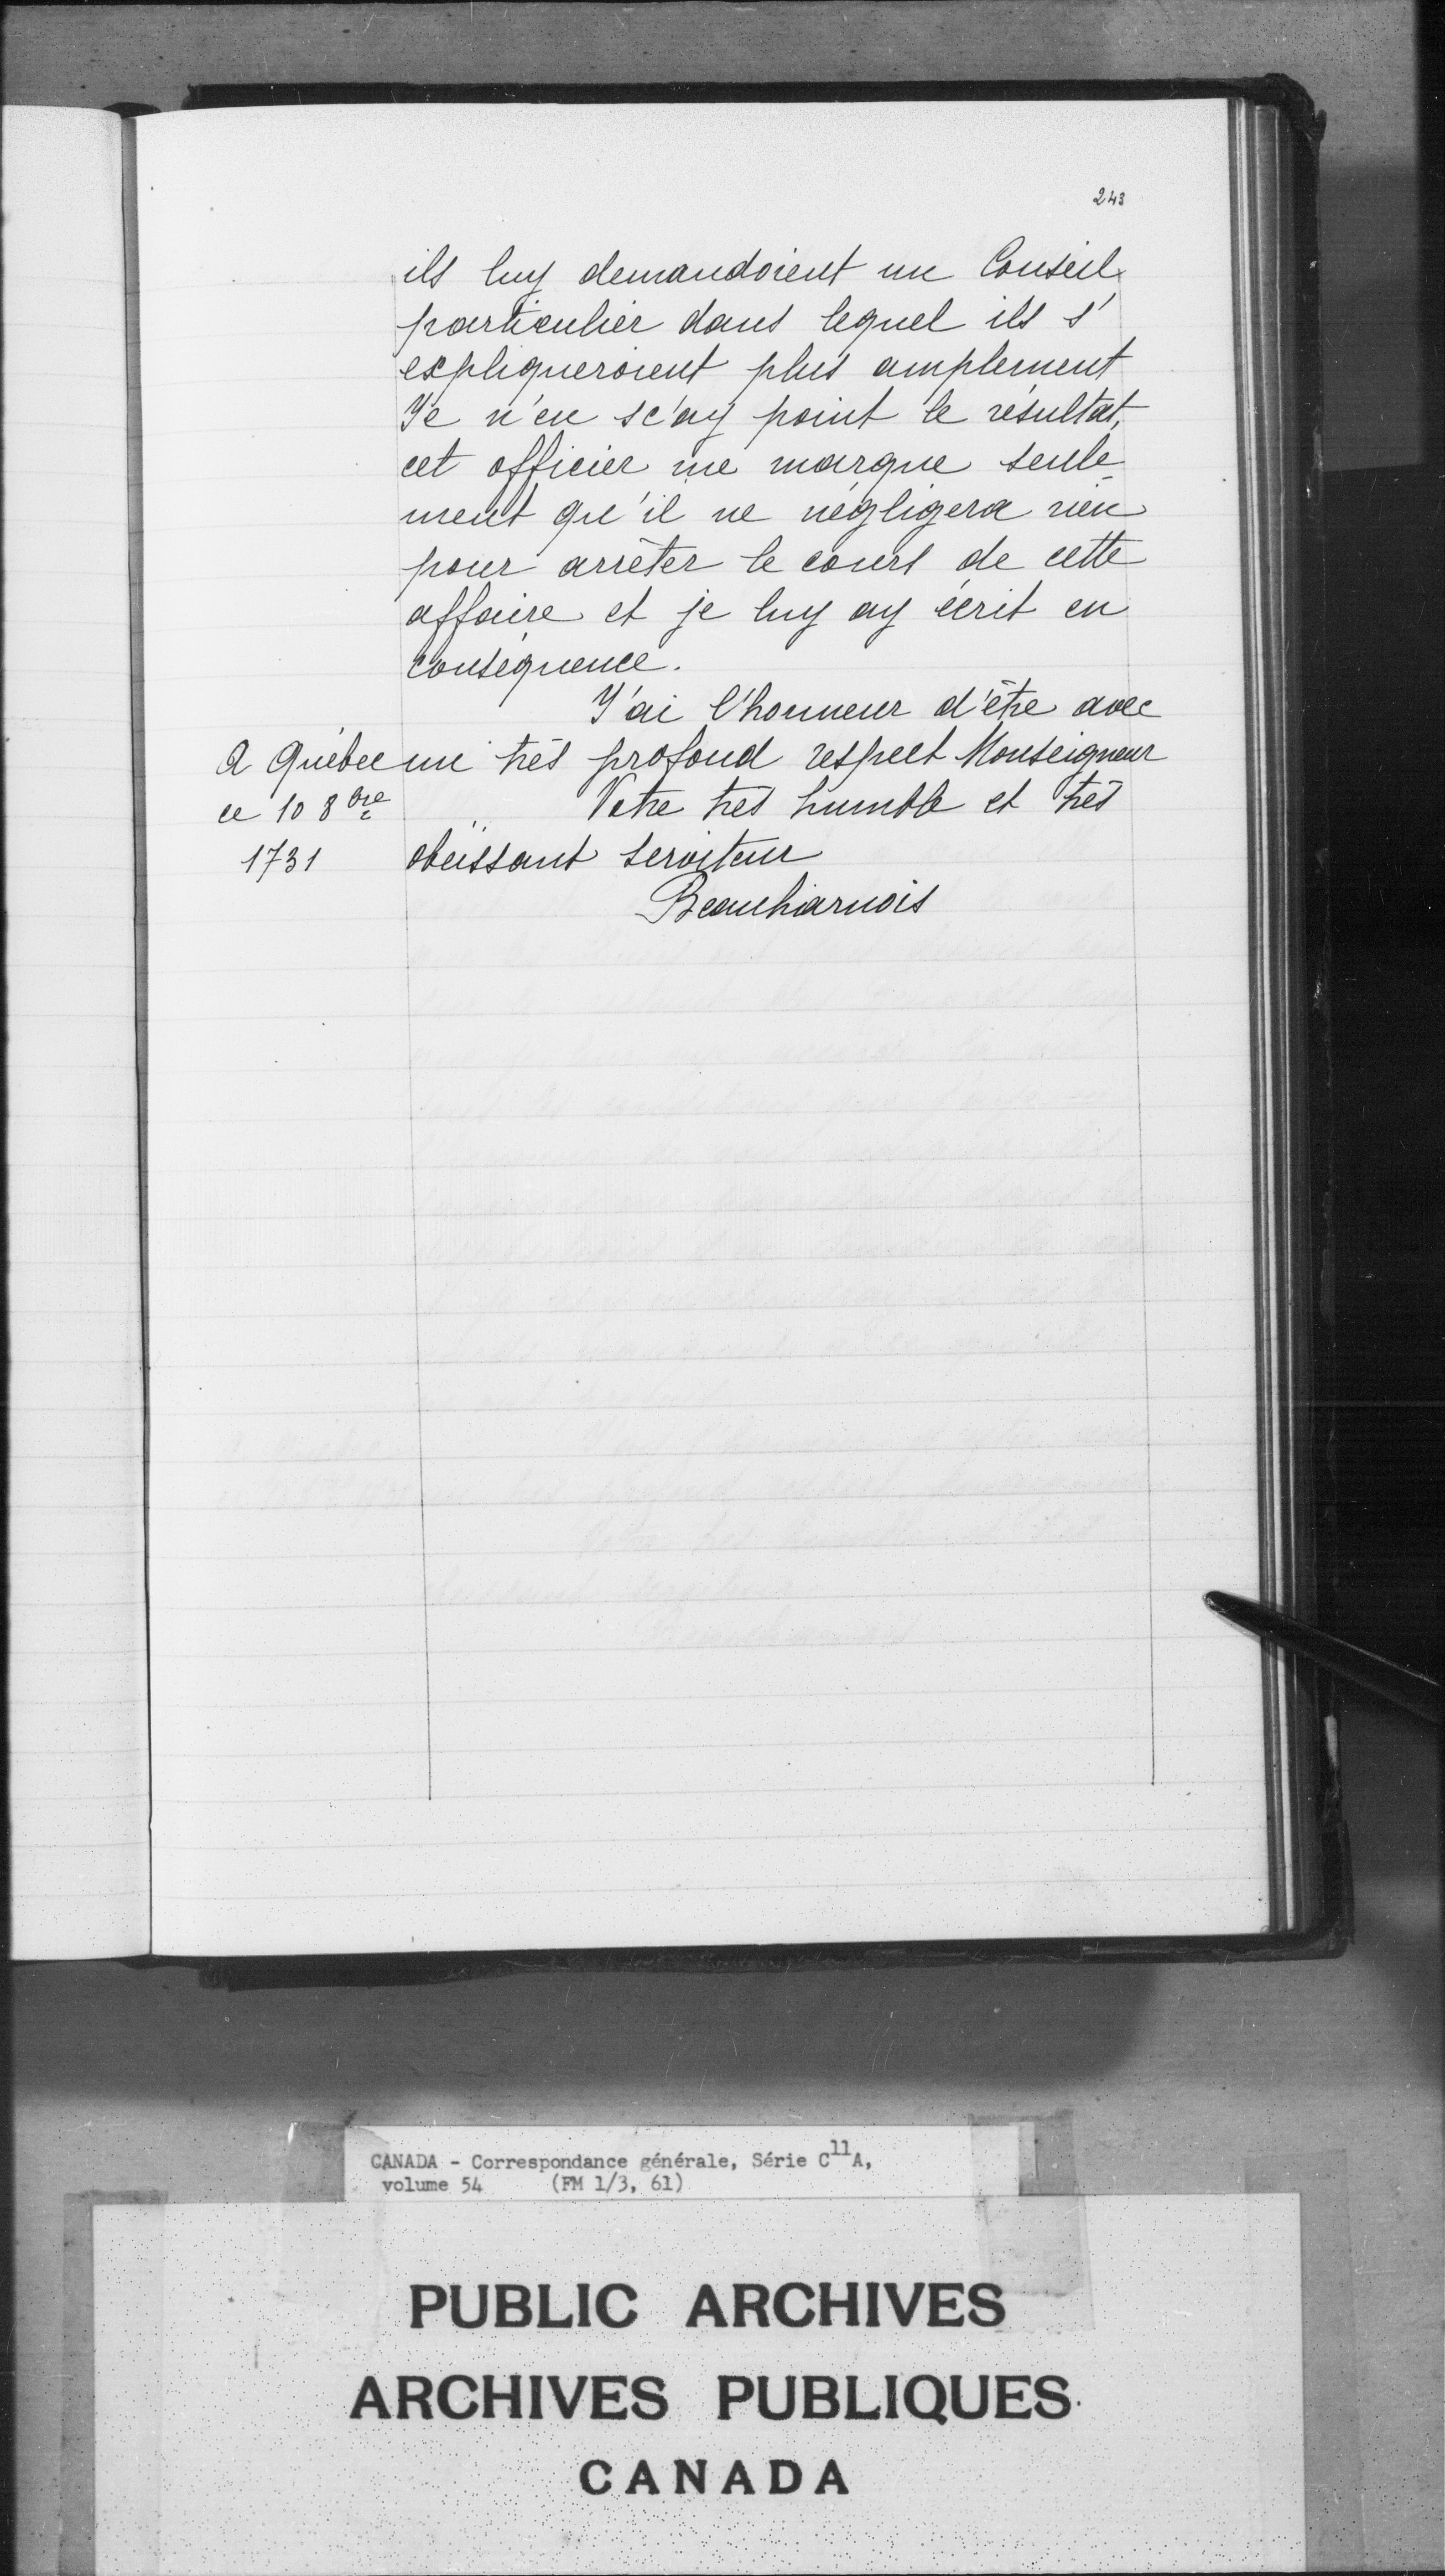 243
ils luy demandoient un Conseil
particulier dans lequel ils s'
expliqueroient plus amplement
Je n'en sc'ay point le résultat,
cet officier me marque seule-
ment qu'il ne négligera rien
pour arrêter le cours de cette
affaire et je luy ay écrit en
conséquence.
J'ai l'honneur d'être avec
un très profond respect Monseigneur
Votre très humble et très
obeïssant serviteur
Beauharnois
A Québec
ce 10 8bre
1731
CANADA - Correspondance générale, Série C11A,
volume 54 (FM 1/3, 61)
PUBLIC ARCHIVES
ARCHIVES PUBLIQUES
CANADA